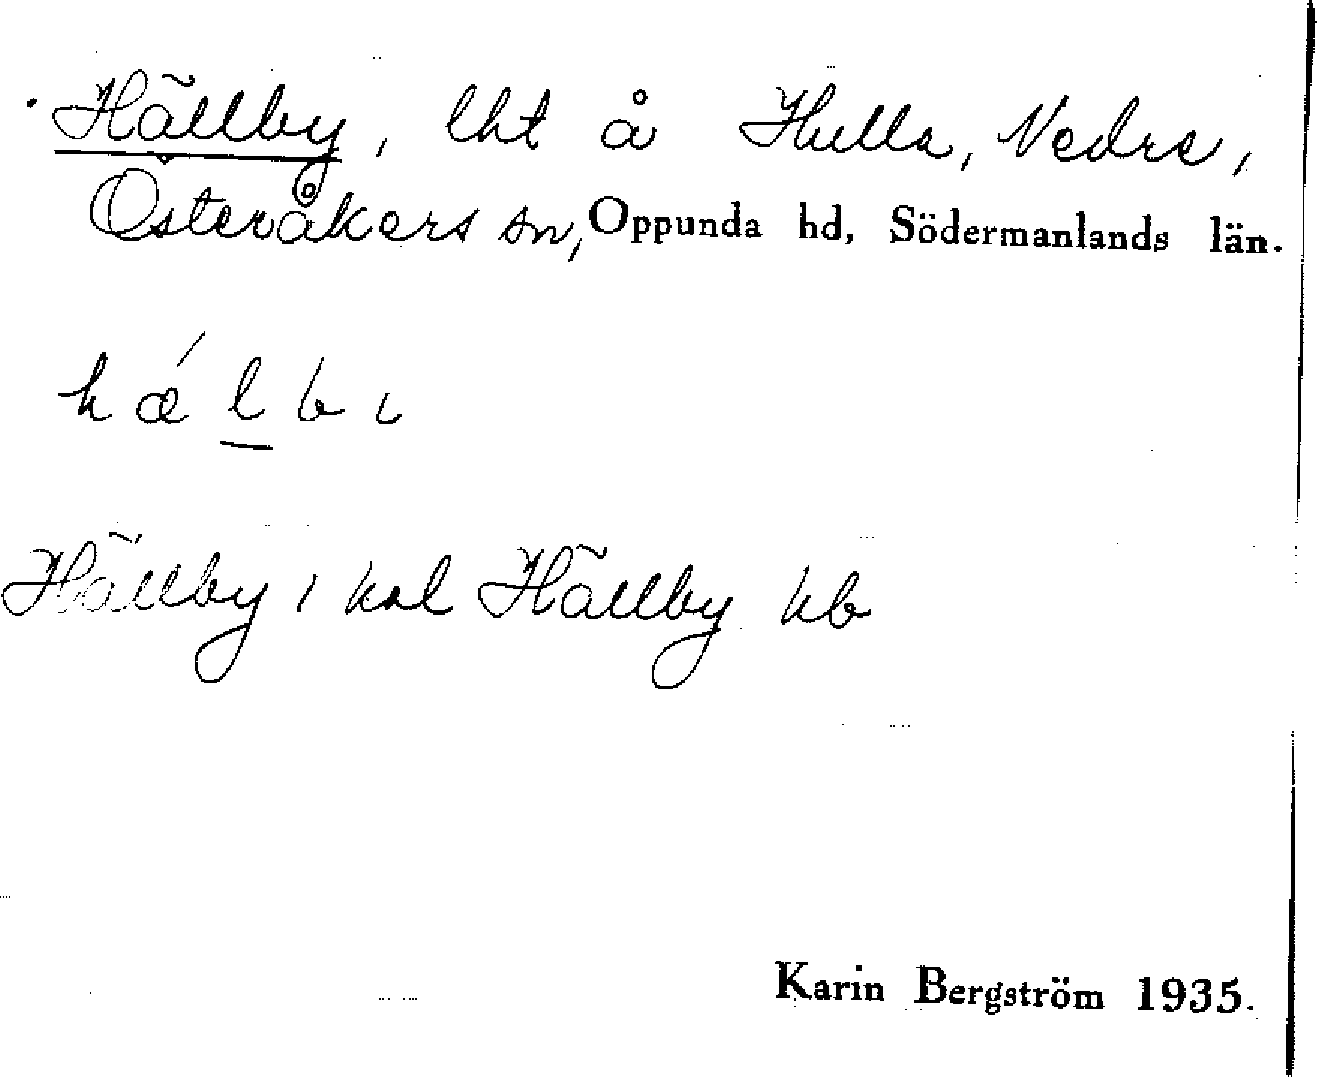 Hällby, lht å Hulla, Nedre,
Österåkers sn, Oppunda hd, Södermanlands län.
hǽlbı
Hällby i kal Hällby kb
Karin Bergström 1935.